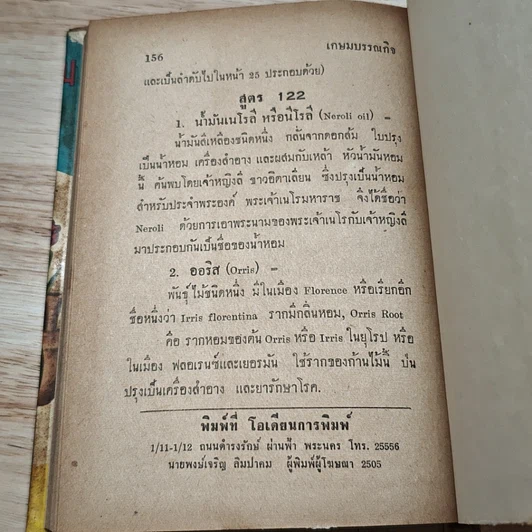 156 เกษมบรรณกิจ
และเป็นลำดับไปในหน้า 25 ประกอบด้วย)
สูตร 122
1. น้ำมันเนโรลี หรือนีโรลี่ (Neroli oil) —
น้ำมันสีเหลืองชนิดหนึ่ง กลั่นจากดอกส้ม ใบปรุง
เป็นน้ำหอม เครื่องสำอาง และผสมกับเหล้า หัวน้ำมันหอม
นี้ ค้นพบโดยเจ้าหญิงลี ชาวอิตาเลียน ซึ่งปรุงเป็นน้ำหอม
สำหรับประจำพระองค์ พระเจ้าเนโรมหาราช จึงได้ชื่อว่า
Neroli ด้วยการเอาพระนามของพระเจ้าเนโรกับเจ้าหญิงลี
มาประกอบกันเป็นชื่อของน้ำหอม
2. ออริส (Orris) —
พันธุ์ไม้ชนิดหนึ่ง มีในเมือง Florence หรือเรียกอีก
ชื่อหนึ่งว่า Irris florentina รากมีกลิ่นหอม, Orris Root
คือ รากหอมของต้น Orris หรือ Irris ในยุโรป หรือ
ในเมือง ฟลอเรนซ์และเยอรมัน ใช้รากของก้านไม้นี้ ป่น
ปรุงเป็นเครื่องสำอาง และยารักษาโรค.
พิมพ์ที่ โอเดียนการพิมพ์
1/11-1/12 ถนนดำรงรักษ์ ผ่านฟ้า พระนคร โทร. 25556
นายพงษ์เจริญ ลิมปาคม ผู้พิมพ์ผู้โฆษณา 2505